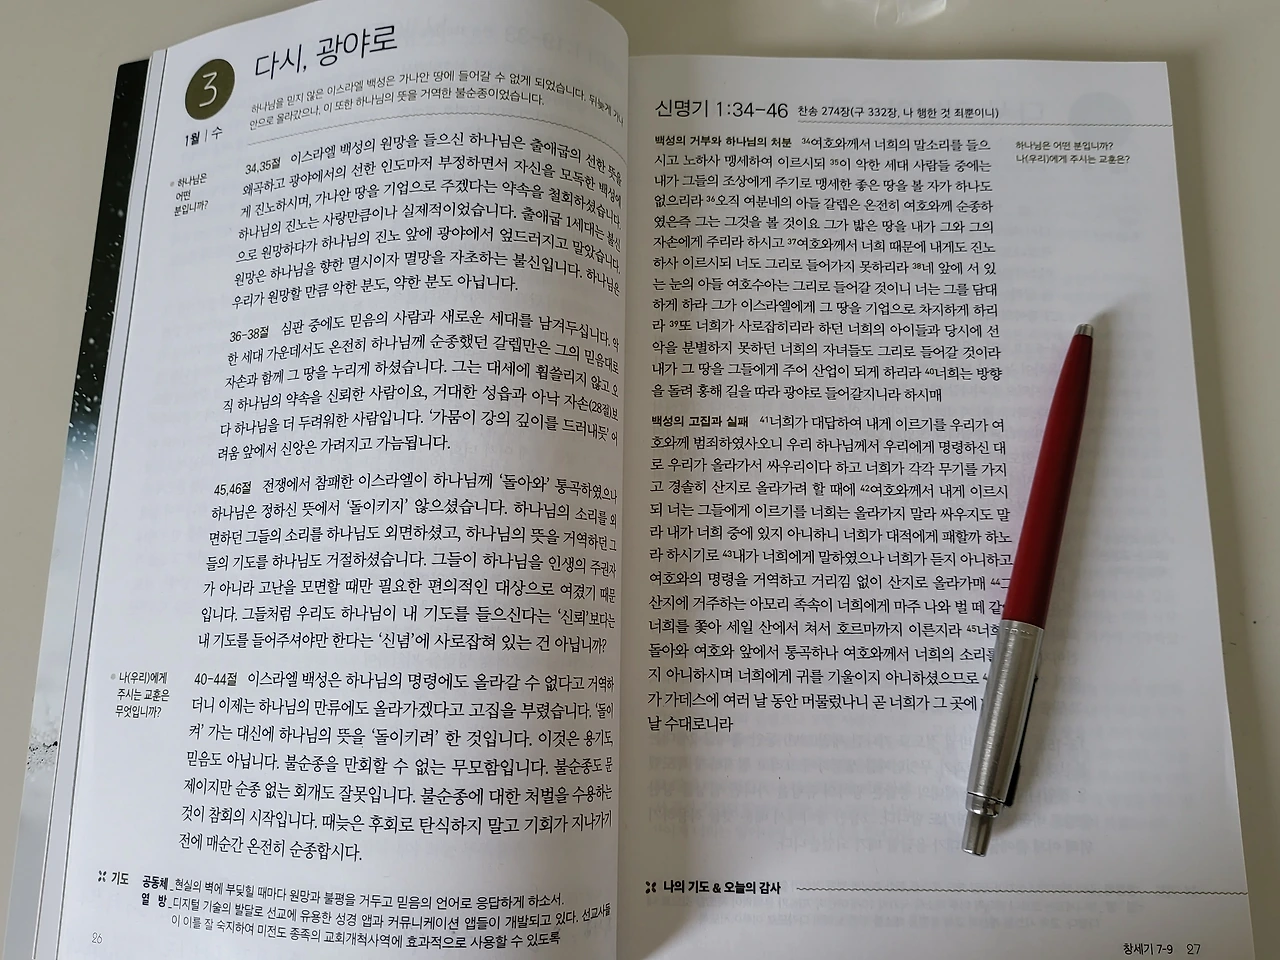 3
1월 | 수
다시, 광야로
하나님을 믿지 않은 이스라엘 백성은 가나안 땅에 들어갈 수 없게 되었습니다. 뒤늦게 가나
안으로 올라갔으나, 이 또한 하나님의 뜻을 거역한 불순종이었습니다.
하나님은
어떤
분입니까?
34,35절 이스라엘 백성의 원망을 들으신 하나님은 출애굽의 선한 뜻을
왜곡하고 광야에서의 선한 인도마저 부정하면서 자신을 모독한 백성에
게 진노하시며, 가나안 땅을 기업으로 주겠다는 약속을 철회하셨습니다.
하나님의 진노는 사랑만큼이나 실제적이었습니다. 출애굽 1세대는 불신
으로 원망하다가 하나님의 진노 앞에 광야에서 엎드러지고 말았습니다.
원망은 하나님을 향한 멸시이자 멸망을 자초하는 불신입니다. 하나님은
우리가 원망할 만큼 악한 분도, 약한 분도 아닙니다.
36-38절 심판 중에도 믿음의 사람과 새로운 세대를 남겨두십니다. 악
한 세대 가운데서도 온전히 하나님께 순종했던 갈렙만은 그의 믿음대로
자손과 함께 그 땅을 누리게 하셨습니다. 그는 대세에 휩쓸리지 않고 오
직 하나님의 약속을 신뢰한 사람이요, 거대한 성읍과 아낙 자손(28절)보
다 하나님을 더 두려워한 사람입니다. ‘가뭄이 강의 깊이를 드러내듯’ 어
려움 앞에서 신앙은 가려지고 가늠됩니다.
45,46절 전쟁에서 참패한 이스라엘이 하나님께 ‘돌아와’ 통곡하였으나
하나님은 정하신 뜻에서 ‘돌이키지’ 않으셨습니다. 하나님의 소리를 외
면하던 그들의 소리를 하나님도 외면하셨고, 하나님의 뜻을 거역하던 그
들의 기도를 하나님도 거절하셨습니다. 그들이 하나님을 인생의 주권자
가 아니라 고난을 모면할 때만 필요한 편의적인 대상으로 여겼기 때문
입니다. 그들처럼 우리도 하나님이 내 기도를 들으신다는 ‘신뢰’보다는
내 기도를 들어주셔야만 한다는 ‘신념’에 사로잡혀 있는 건 아닙니까?
나(우리)에게
주시는 교훈은
무엇입니까?
40-44절 이스라엘 백성은 하나님의 명령에도 올라갈 수 없다고 거역하
더니 이제는 하나님의 만류에도 올라가겠다고 고집을 부렸습니다. ‘돌이
켜’ 가는 대신에 하나님의 뜻을 ‘돌이키려’ 한 것입니다. 이것은 용기도
믿음도 아닙니다. 불순종을 만회할 수 없는 무모함입니다. 불순종도 문
제이지만 순종 없는 회개도 잘못입니다. 불순종에 대한 처벌을 수용하는
것이 참회의 시작입니다. 때늦은 후회로 탄식하지 말고 기회가 지나가기
전에 매순간 온전히 순종합시다.
기도 공동체_현실의 벽에 부딪힐 때마다 원망과 불평을 거두고 믿음의 언어로 응답하게 하소서.
열 방_디지털 기술의 발달로 선교에 유용한 성경 앱과 커뮤니케이션 앱들이 개발되고 있다. 선교사들
이 이를 잘 숙지하여 미전도 종족의 교회개척사역에 효과적으로 사용할 수 있도록
26
신명기 1:34-46 찬송 274장(구 332장, 나 행한 것 죄뿐이니)
하나님은 어떤 분입니까?
나(우리)에게 주시는 교훈은?
백성의 거부와 하나님의 처분 34여호와께서 너희의 말소리를 들으
시고 노하사 맹세하여 이르시되 35이 악한 세대 사람들 중에는
내가 그들의 조상에게 주기로 맹세한 좋은 땅을 볼 자가 하나도
없으리라 36오직 여분네의 아들 갈렙은 온전히 여호와께 순종하
였은즉 그는 그것을 볼 것이요 그가 밟은 땅을 내가 그와 그의
자손에게 주리라 하시고 37여호와께서 너희 때문에 내게도 진노
하사 이르시되 너도 그리로 들어가지 못하리라 38네 앞에 서 있
는 눈의 아들 여호수아는 그리로 들어갈 것이니 너는 그를 담대
하게 하라 그가 이스라엘에게 그 땅을 기업으로 차지하게 하리
라 39또 너희가 사로잡히리라 하던 너희의 아이들과 당시에 선
악을 분별하지 못하던 너희의 자녀들도 그리로 들어갈 것이라
내가 그 땅을 그들에게 주어 산업이 되게 하리라 40너희는 방향
을 돌려 홍해 길을 따라 광야로 들어갈지니라 하시매
백성의 고집과 실패 41너희가 대답하여 내게 이르기를 우리가 여
호와께 범죄하였사오니 우리 하나님께서 우리에게 명령하신 대
로 우리가 올라가서 싸우리이다 하고 너희가 각각 무기를 가지
고 경솔히 산지로 올라가려 할 때에 42여호와께서 내게 이르시
되 너는 그들에게 이르기를 너희는 올라가지 말라 싸우지도 말
라 내가 너희 중에 있지 아니하니 너희가 대적에게 패할까 하노
라 하시기로 43내가 너희에게 말하였으나 너희가 듣지 아니하고
여호와의 명령을 거역하고 거리낌 없이 산지로 올라가매 44그
산지에 거주하는 아모리 족속이 너희에게 마주 나와 벌 떼 같
너희를 쫓아 세일 산에서 쳐서 호르마까지 이른지라 45너희
돌아와 여호와 앞에서 통곡하나 여호와께서 너희의 소리를
지 아니하시며 너희에게 귀를 기울이지 아니하셨으므로
가 가데스에 여러 날 동안 머물렀나니 곧 너희가 그 곳에
날 수대로니라
나의 기도 & 오늘의 감사
창세기 7-9 27